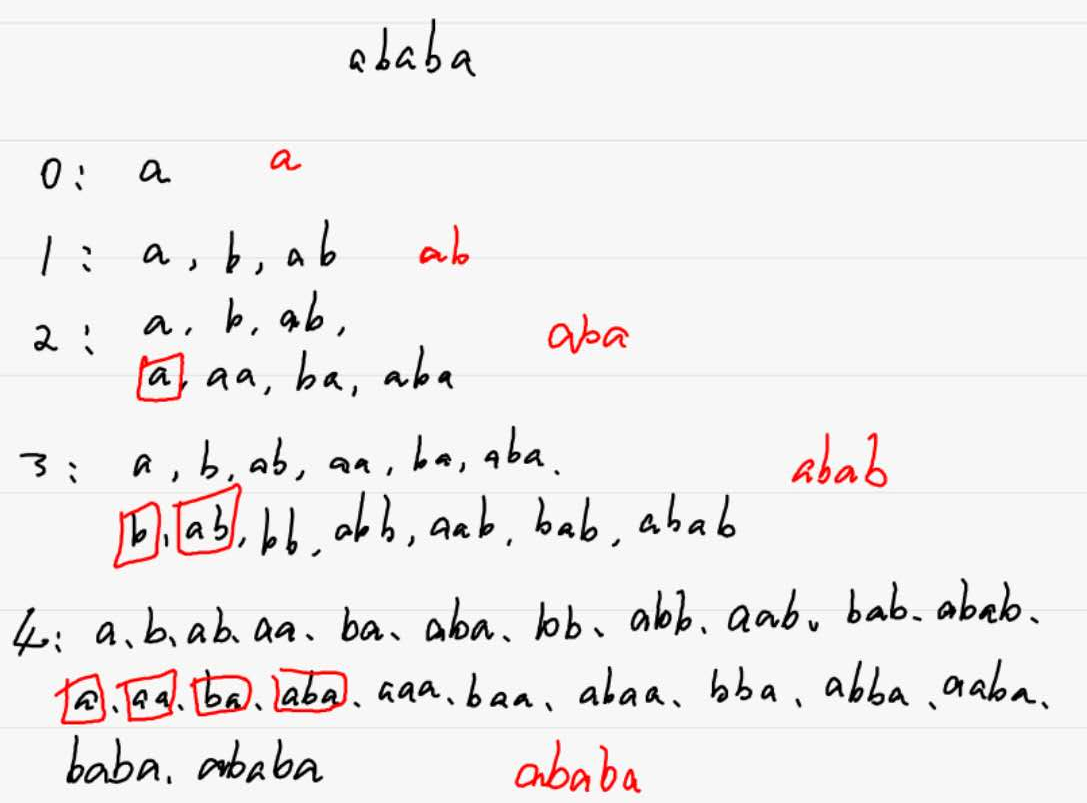 ababa
0: a a
1: a, b, ab ab
2: a. b. ab, aba
a, aa, ba, aba
3: a, b, ab, aa, ba, aba. abab
b, ab, bb, abb, aab, bab, abab
4: a、b、ab、aa、ba、aba、bb、abb、aab、bab、abab、
a、aa、ba、aba、aaa、baa、abaa、bba、abba、aaba、
baba、ababa ababa